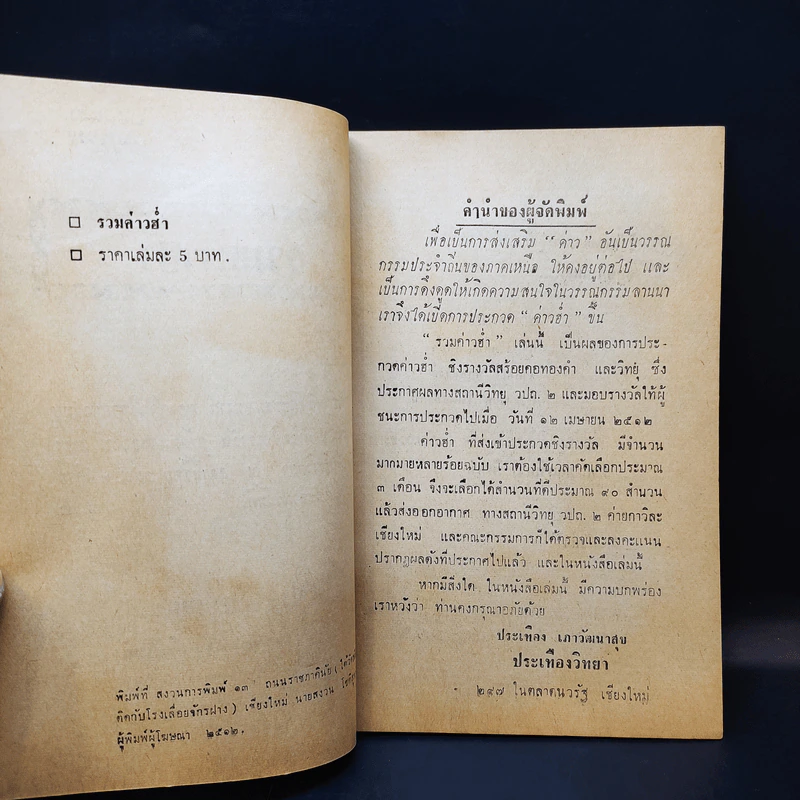 รวมค่าวฮ่ำ
ราคาเล่มละ 5 บาท.
พิมพ์ที่ สงวนการพิมพ์ ๑๓ ถนนราชภาคินัย
ติดกับโรงเลื่อยจักรฝาง) เชียงใหม่ นายสงวน
ผู้พิมพ์ผู้โฆษณา ๒๕๑๒.
คำนำของผู้จัดพิมพ์
เพื่อเป็นการส่งเสริม “ ค่าว ” อันเป็นวรรณ
กรรมประจำถิ่นของภาคเหนือ ให้คงอยู่ต่อไป และ
เป็นการดึงดูดให้เกิดความสนใจในวรรณกรรมลานนา
เราจึงได้เปิดการประกวด “ ค่าวฮ่ำ ” ขึ้น
“ รวมค่าวฮ่ำ ” เล่นนี้ เป็นผลของการประ-
กวดค่าวฮ่ำ ชิงรางวัลสร้อยคอทองคำ และวิทยุ ซึ่ง
ประกาศผลทางสถานีวิทยุ วปถ. ๒ และมอบรางวัลให้ผู้
ชนะการประกวดไปเมื่อ วันที่ ๑๒ เมษายน ๒๕๑๒
ค่าวฮ่ำ ที่ส่งเข้าประกวดชิงรางวัล มีจำนวน
มากมายหลายร้อยฉบับ เราต้องใช้เวลาคัดเลือกประมาณ
๓ เดือน จึงจะเลือกได้สำนวนที่ดีประมาณ ๙๐ สำนวน
แล้วส่งออกอากาศ ทางสถานีวิทยุ วปถ. ๒ ค่ายกาวิละ
เชียงใหม่ และคณะกรรมการก็ได้ตรวจและลงคะแนน
ปรากฏผลดังที่ประกาศไปแล้ว และในหนังสือเล่มนี้
หากมีสิ่งใด ในหนังสือเล่มนี้ มีความบกพร่อง
เราหวังว่า ท่านคงกรุณาอภัยด้วย
ประเทือง เภาวัฒนาสุข
ประเทืองวิทยา
๒๙๗ ในตลาดนวรัฐ เชียงใหม่